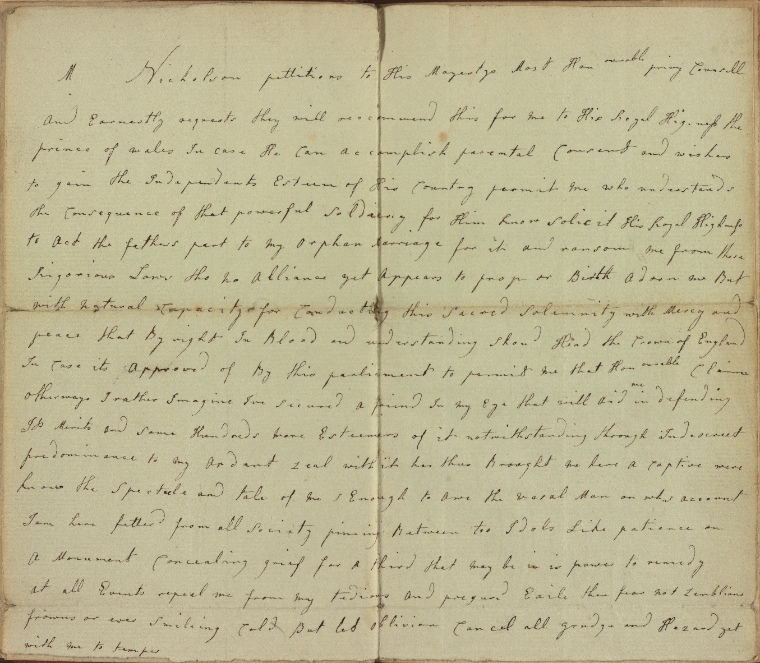 M Nicholson pettitions to His Mayestys Most Hon ourable privy Councill
And Earnestly requests they will reccommend this for me to His Royal Highness the
prince of wales In case He Can accomplish parental Consent and wishes
to gain the Independants Esteem of His Country permit me who understands
the Consequence of that powerful soldiery for Him know solicit His Royal Highness
to Act the fathers part to my orphan Carriage for it and ransom me from these
Rigorious Laws tho no Alliance yet Appears to prop or Birth Adorn me But
with natural Capacitys for Conducting this Sacred Solemnity with Mercy and
peace that By right In Blood and understanding Shoud Head the Crown of England
In Case its Approved of By this parliament to permit me that Hon ourable Claime
otherways I rather Imagine Ive secured a friend In my Eye that will Aid me in defending
Its Merits and some Hundreds more Esteemers of it notwithstanding through indiscreet
predominance to my Ardant zeal with it has thus Brought me here a Captive were
know the Spectacle and tale of me s Enough to Awe the Man on who account
I am here fetterd from all society pining Between too Idols Like patience on
A Monument Concealing grief for a third that may be in is power to remedy
at all Events repeal me from my tedious and Exile then fear not
frowns or ever Smileing But let oblivion Cancel all grudge and Hazard yet
with me to temper